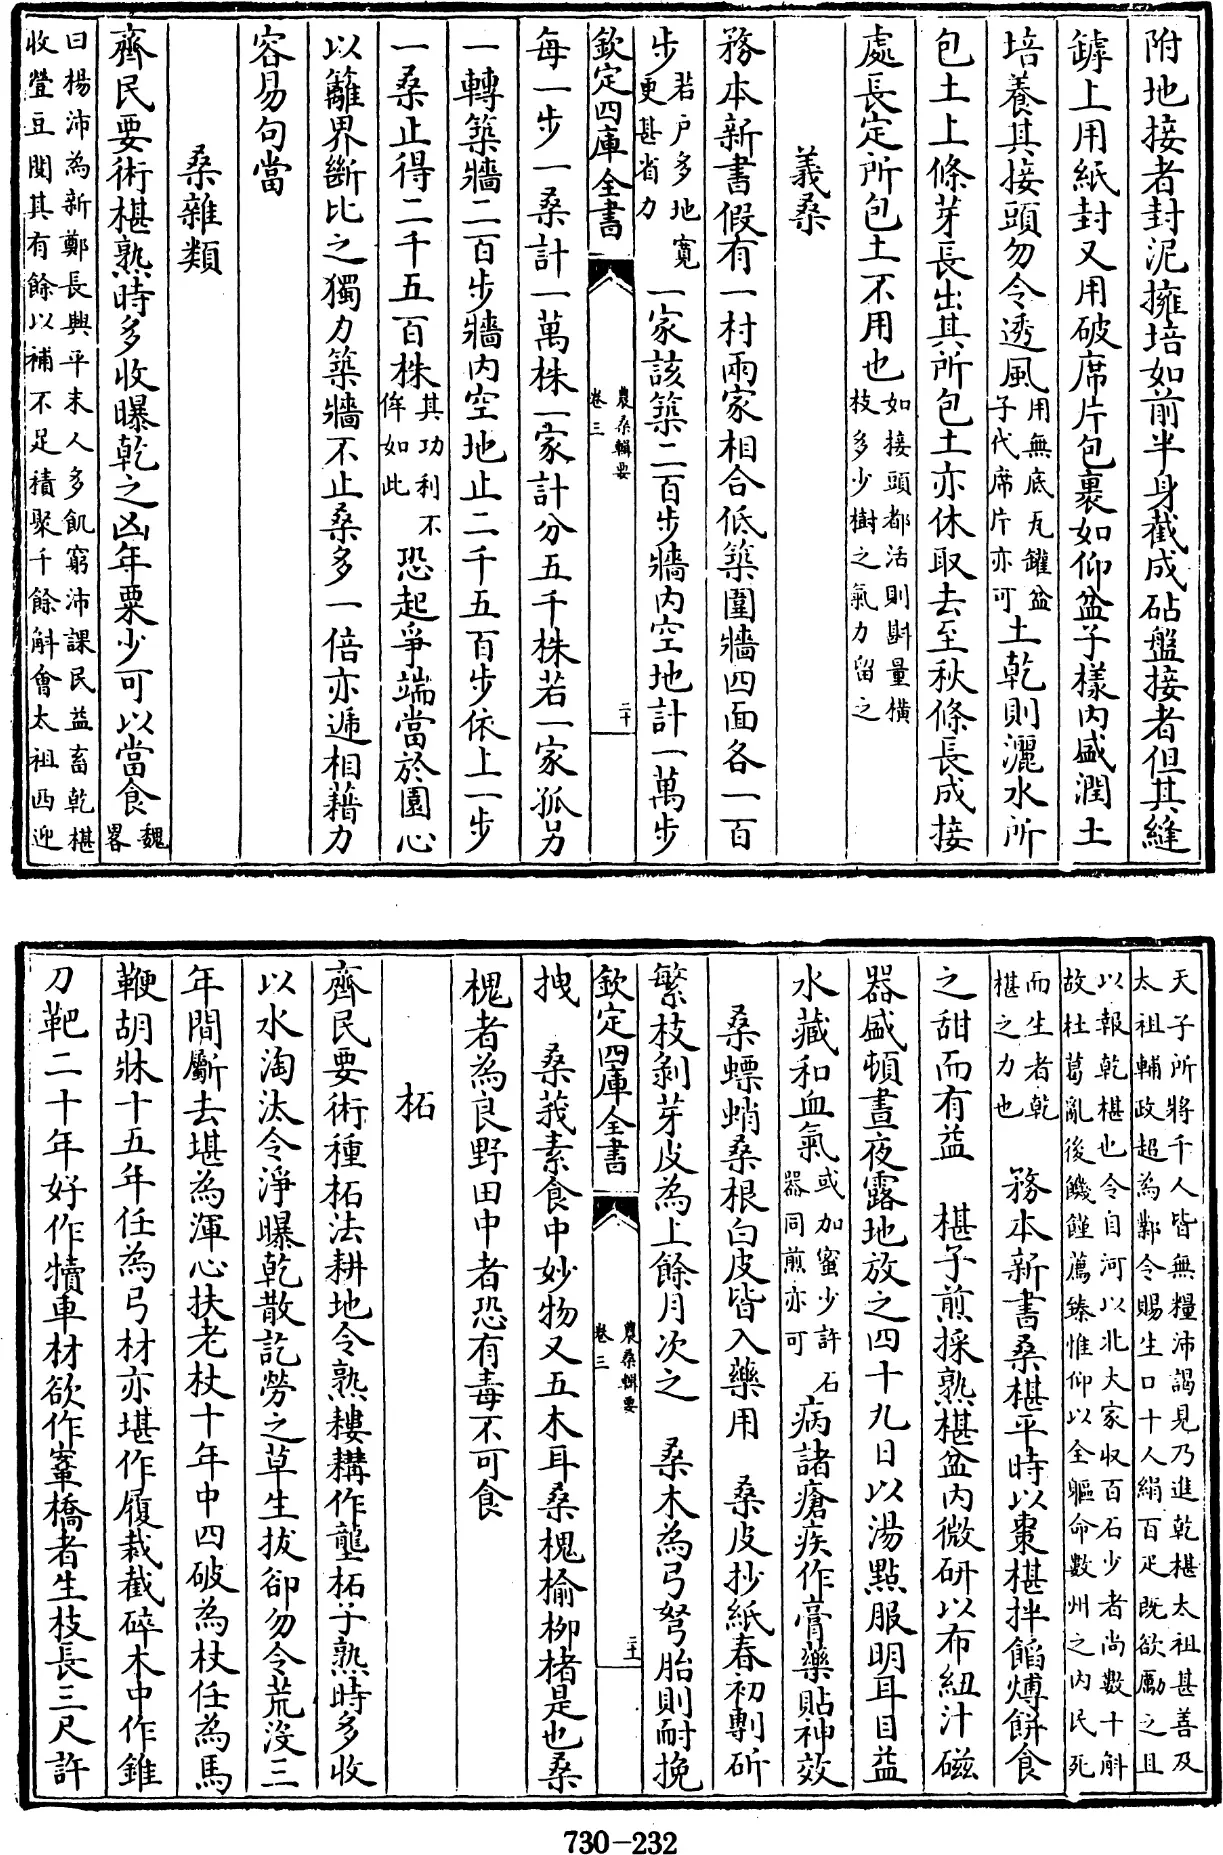 附地接者封泥擁培如前半身截成砧盤接者但其縫
罅上用紙封又用破席片包裹如仰盆子樣内盛潤土
培養其接頭勿令透風用無底瓦罐盆子代席片亦可土乾則灑水所
包土上條芽長出其所包土亦休取去至秋條長成接
處長定所包土不用也如接頭都活則斟量橫枝多少樹之氣力留之
義桑
務本新書假有一村兩家相合低築圍牆四面各一百
步若户多地寛更甚省力一家該築二百步牆内空地計一萬步
欽定四庫全書
農桑輯要
卷三
二十
每一步一桑計一萬株一家計分五千株若一家孤另
一轉築牆二百步牆内空地止二千五百步依上一步
一桑止得二千五百株其功利不侔如此恐起爭端當於園心
以籬界斷比之獨力築牆不止桑多一倍亦遞相藉力
容易句當
桑雜類
齊民要術椹熟時多收曝乾之凶年粟少可以當食魏畧
曰楊沛為新鄭長興平末人多飢窮沛課民益畜乾椹
收䝁豆閲其有餘以補不足積聚千餘斛會太祖西迎
天子所將千人皆無糧沛謁見乃進乾椹太祖甚善及
太祖輔政超為鄴令賜生口十人絹百疋既欲勵之且
以報乾椹也今自河以北大家收百石少者尚數十斛
故杜葛亂後饑饉薦臻惟仰以全軀命數州之内民死
而生者乾椹之力也　務本新書桑椹平時以棗椹拌餡煿餅食
之甜而有益　椹子煎採熟椹盆内微研以布紐汁磁
器盛頓晝夜露地放之四十九日以湯點服明耳目益
水藏和血氣或加蜜少許石器同煎亦可病諸瘡疾作膏藥貼神效
桑螵蛸桑根白皮皆入藥用　桑皮抄紙春初剸斫
繁枝剝芽皮為上餘月次之　桑木為弓弩胎則耐挽
欽定四庫全書
農桑輯要
卷三
二十一
拽　桑莪素食中妙物又五木耳桑槐榆柳楮是也桑
槐者為良野田中者恐有毒不可食
柘
齊民要術種柘法耕地令熟耬耩作壟柘子熟時多收
以水淘汰令淨曝乾散訖勞之草生拔卻勿令荒没三
年間斸去堪為渾心扶老杖十年中四破為杖任為馬
鞭胡牀十五年任為弓材亦堪作履裁截碎木中作錐
刀靶二十年好作犢車材欲作鞌橋者生枝長三尺許
730-232